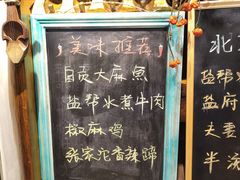 美味推荐
自贡大麻鱼
盐帮水煮牛肉
椒麻鸡
张家沱香辣蹄
北
盐帮
盐府
夫妻
半